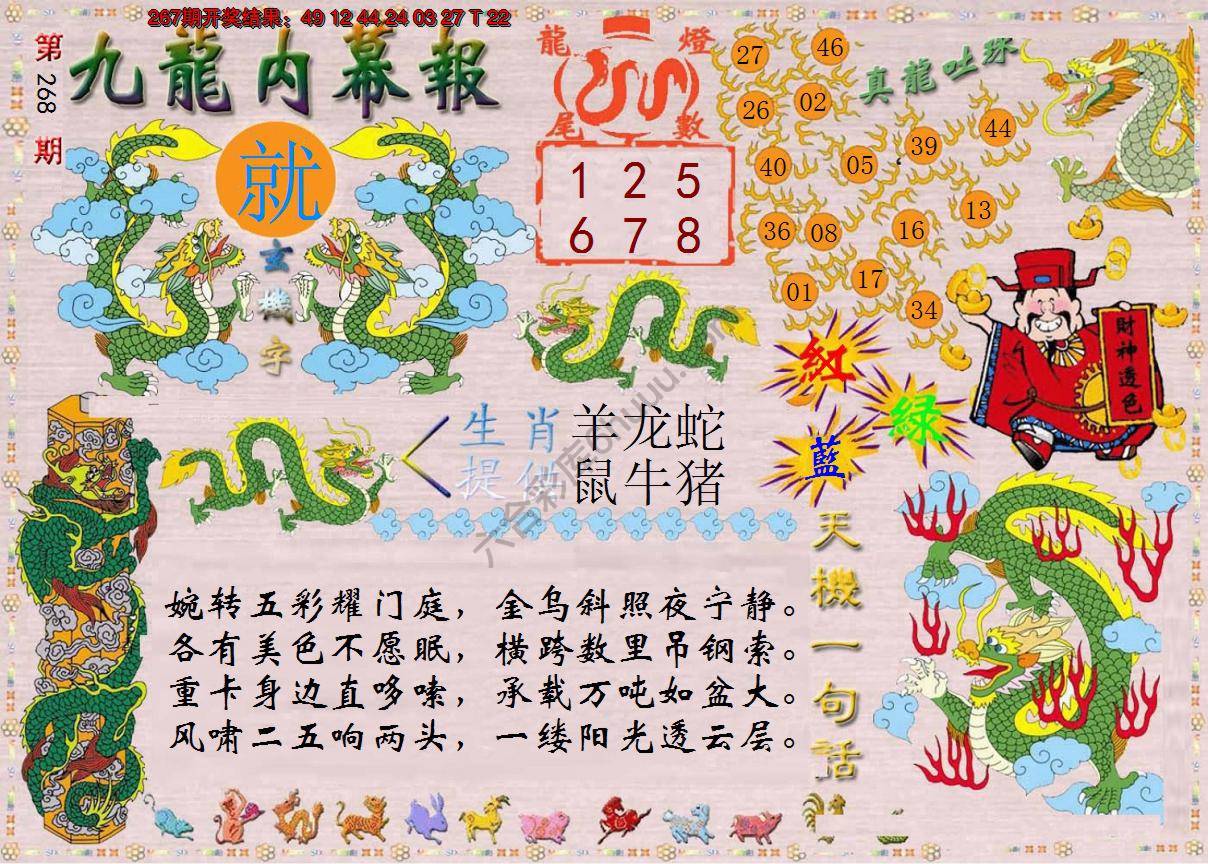 267期开奖结果：49 12 44 24 03 27 T 22
第268期
九龍内幕報
就
玄機字
龍燈
尾數
1 2 5
6 7 8
真龍吐珠
27 46
26 02
40 05 39 44
36 08 16 13
01 17 34
財神透色
紅
綠
藍
生肖 羊龙蛇
提供 鼠牛猪
天機一句話
婉转五彩耀门庭，金乌斜照夜宁静。
各有美色不愿眠，横跨数里吊钢索。
重卡身边直哆嗦，承载万吨如盆大。
风啸二五响两头，一缕阳光透云层。